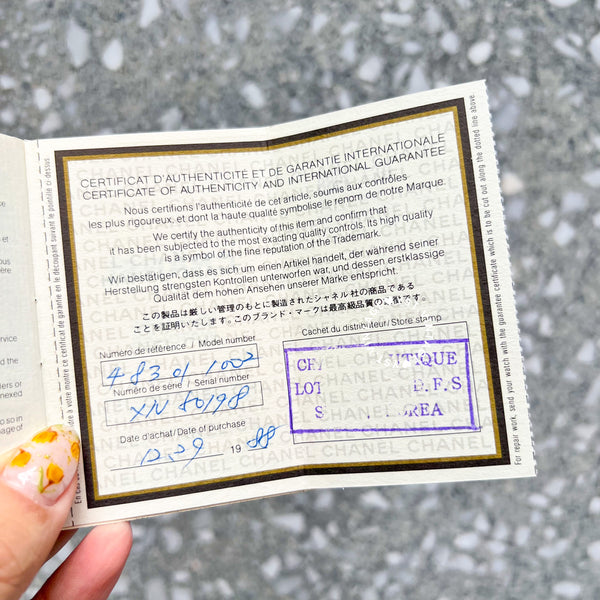 CERTIFICAT D'AUTHENTICITÉ ET DE GARANTIE INTERNATIONALE
CERTIFICATE OF AUTHENTICITY AND INTERNATIONAL GUARANTEE
Nous certifions l'authenticité de cet article, soumis aux contrôles
les plus rigoureux, et dont la haute qualité symbolise le renom de notre Marque.
We certify the authenticity of this item and confirm that
it has been subjected to the most exacting quality controls. Its high quality
is a symbol of the fine reputation of the Trademark.
Wir bestätigen, dass es sich um einen Artikel handelt, der während seiner
Herstellung strengsten Kontrollen unterworfen war, und dessen erstklassige
Qualität dem hohen Ansehen unserer Marke entspricht.
この製品は厳しい管理のもとに製造されたシャネル社の商品である
ことを証明いたします。このブランド・マークは最高級品質の証です。
Numéro de référence / Model number
48301 1002
Numéro de série / Serial number
XN 80198
Date d'achat/Date of purchase
19 88
Cachet du distributeur/Store stamp
UTIQUE
LOT D.F.S
S REA
For repair work, send your watch with the guarantee certificate which is to be cut out along the dotted line above.
à votre montre ce certificat de garantie en le découpant suivant le pointillé ci-dessus.